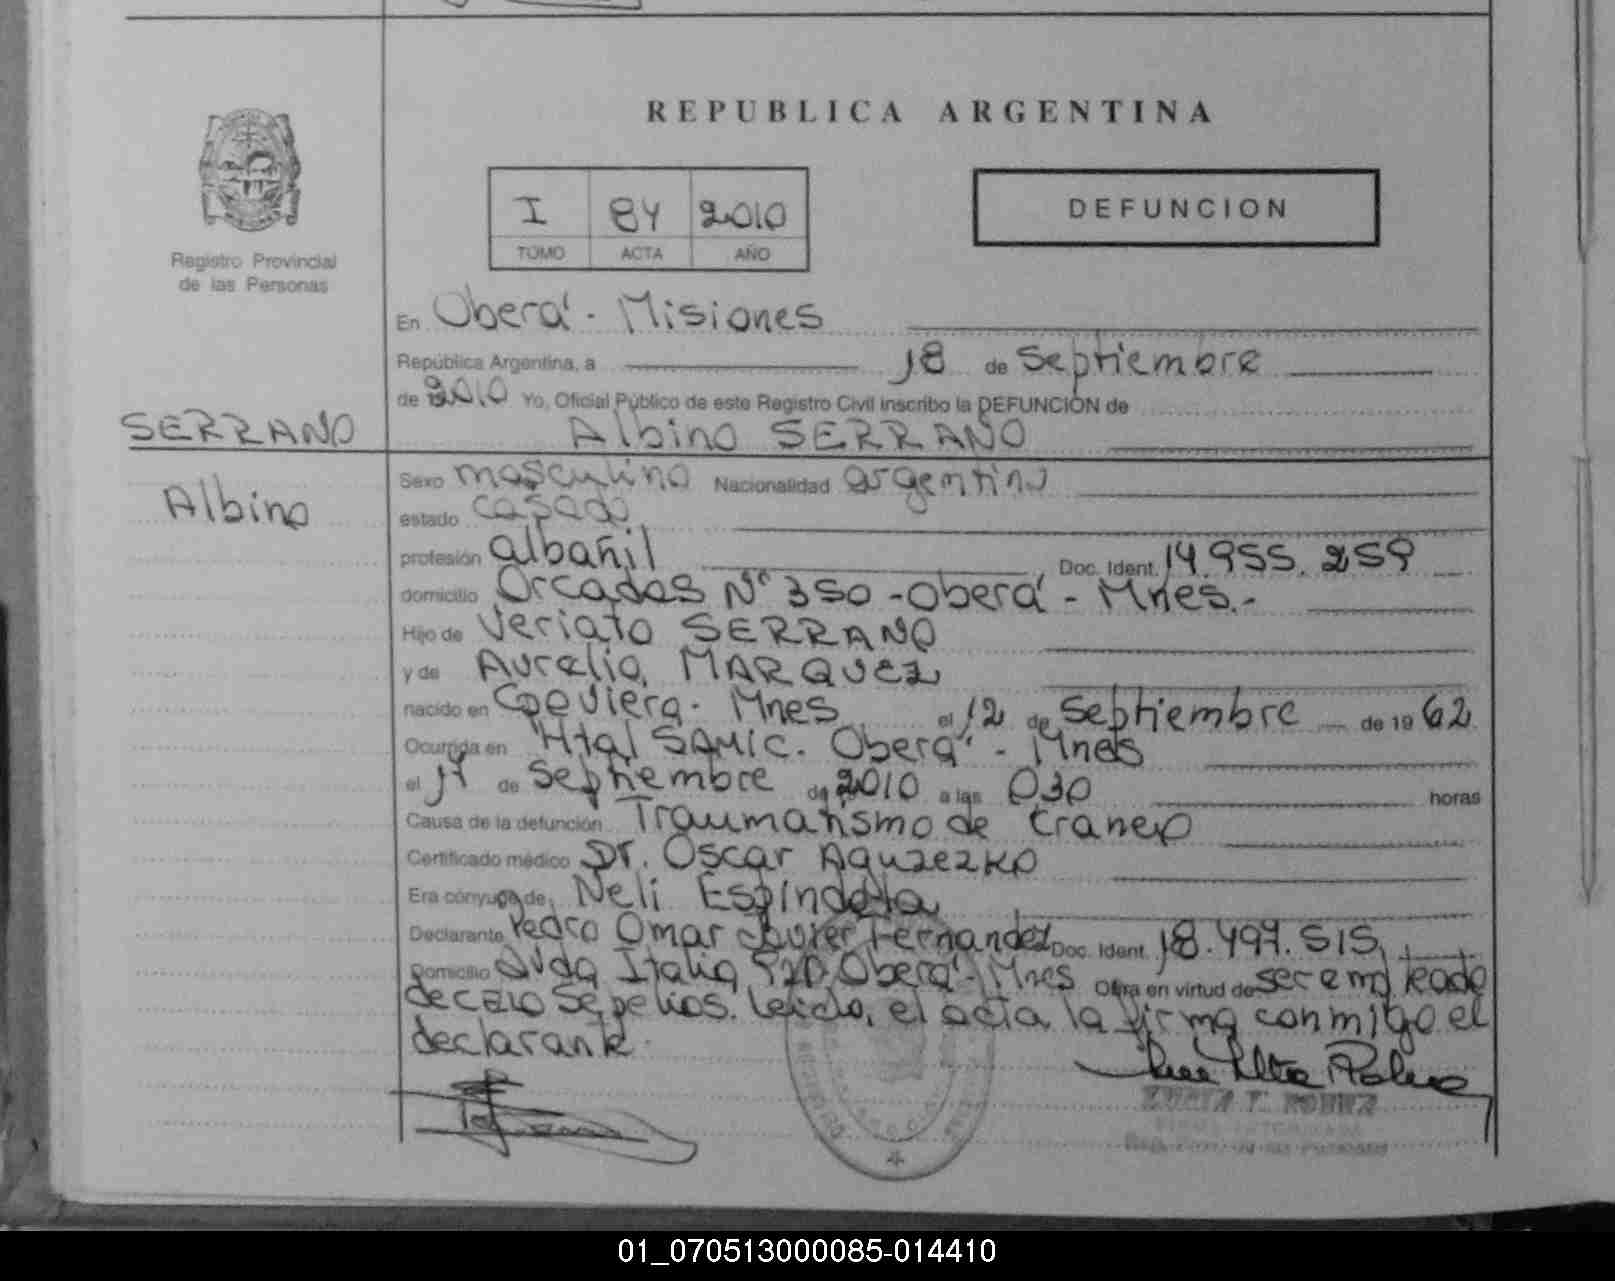 REPUBLICA ARGENTINA
I 84 2010
TOMO ACTA AÑO
DEFUNCION
Registro Provincial
de las Personas
En Oberá - Misiones
República Argentina, a 18 de Septiembre
de 2010 Yo, Oficial Público de este Registro Civil inscribo la DEFUNCIÓN de
SERRANO
Albino SERRANO
Albino
Sexo masculino Nacionalidad argentino
estado casado
profesión albañil Doc. Ident. 14.955.259
domicilio Orcadas Nº 350 - Oberá - Mnes.-
Hijo de Veriato SERRANO
y de Aurelia MARQUEZ
nacido en Mnes el 12 de Septiembre de 1962
Ocurrida en Htal SAMIC. Oberá - Mnes
el de Septiembre de 2010 a las 030 horas
Causa de la defunción Traumatismo de Craneo
Certificado médico Dr. Oscar
Era cónyuge de Neli Espíndola
Declarante Pedro Omar Javier Fernandez Doc. Ident. 18.497.515
Domicilio Avda Italia Oberá - Mnes Obra en virtud de ser empleado
de Sepelios. Leida, el acta, la firma conmigo el
declarante.
01_070513000085-014410